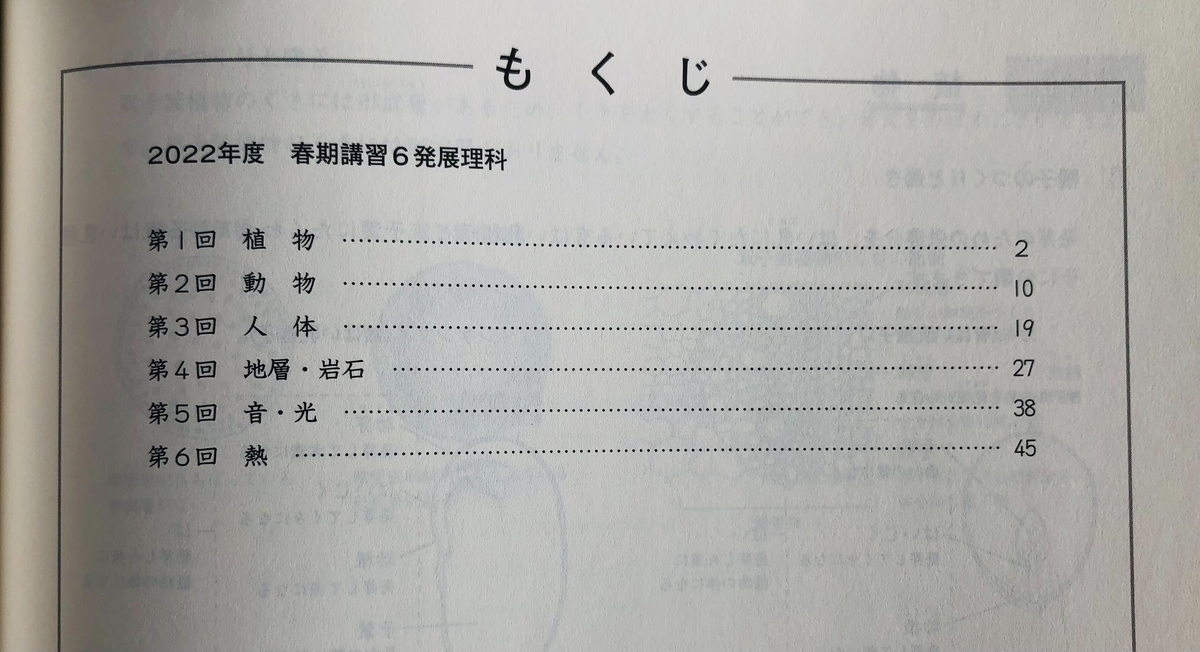 もくじ
2022年度 春期講習6発展理科
第1回 植物 …… 2
第2回 動物 …… 10
第3回 人体 …… 19
第4回 地層・岩石 …… 27
第5回 音・光 …… 38
第6回 熱 …… 45